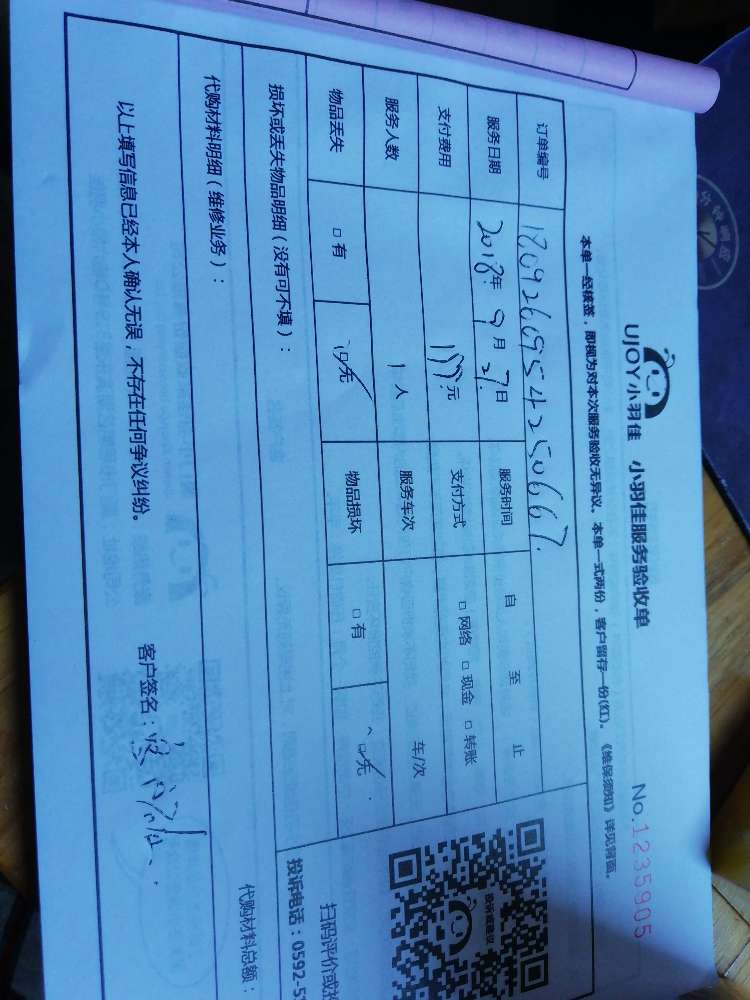 UJOY小羽佳 小羽佳服务验收单 No.1235905
本单一经核签，即视为对本次服务验收无异议。本单一式两份，客户留存一份(红)。《维保须知》详见背面。
订单编号
服务日期 2018年 9月 27日 服务时间 自 至 止
支付费用 199元 支付方式 □网络 □现金 □转账
服务人数 1人 服务车次 车/次
物品丢失 □有 □无 物品损坏 □有 □无
损坏或丢失物品明细（没有可不填）：
代购材料明细（维修业务）：
代购材料总额：
以上填写信息已经本人确认无误，不存在任何争议纠纷。 客户签名：
扫码评价或投
投诉电话：0592-5